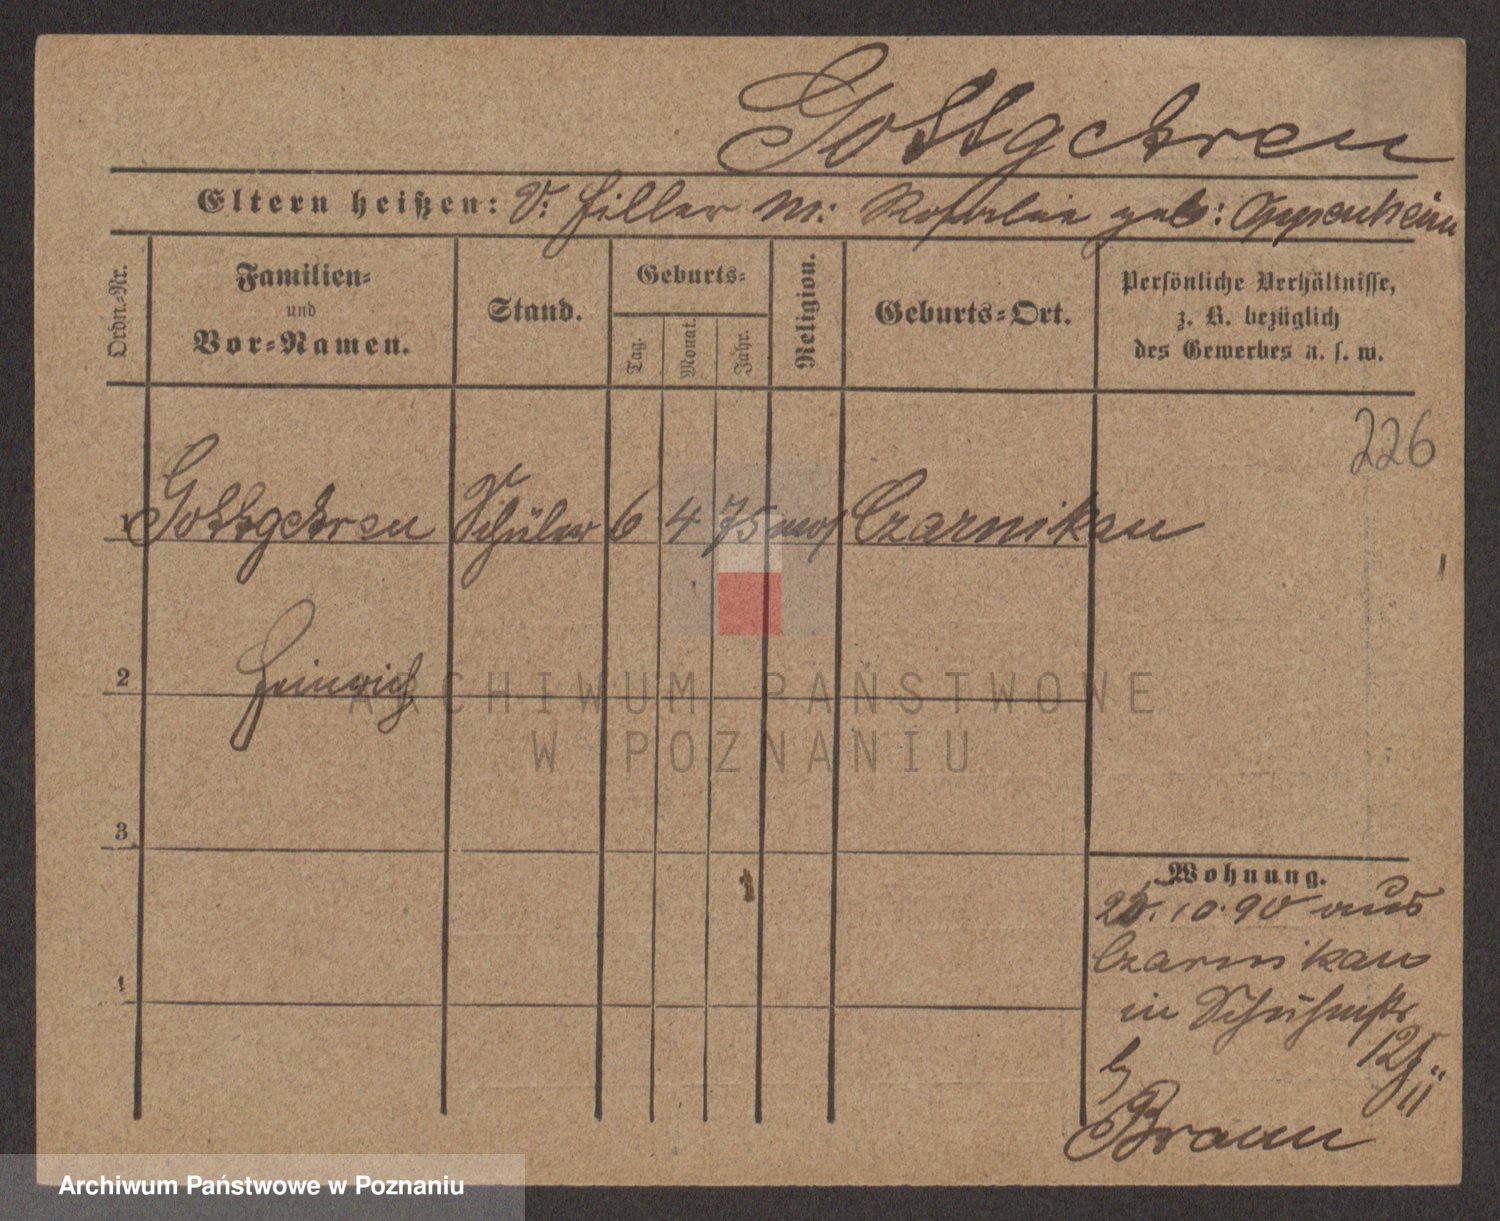 Gottgetreu
Eltern heißen: V: Hiller M: Rosalie geb: Oppenheim
Ordn.-Nr.
Familien-
und
Vor-Namen.
Stand.
Geburts-
Tag.
Monat.
Jahr.
Religion.
Geburts-Ort.
Persönliche Verhältnisse,
z. B. bezüglich
des Gewerbes u. s. w.
226
1 Gottgetreu Schüler 6 4 75 mos Czarnikau
2 Heinrich
3
4
Wohnung.
25.10.90 aus
Czarnikau
in Schuhmstr
12
b/
Braun
ARCHIWUM PAŃSTWOWE
W POZNANIU
Archiwum Państwowe w Poznaniu